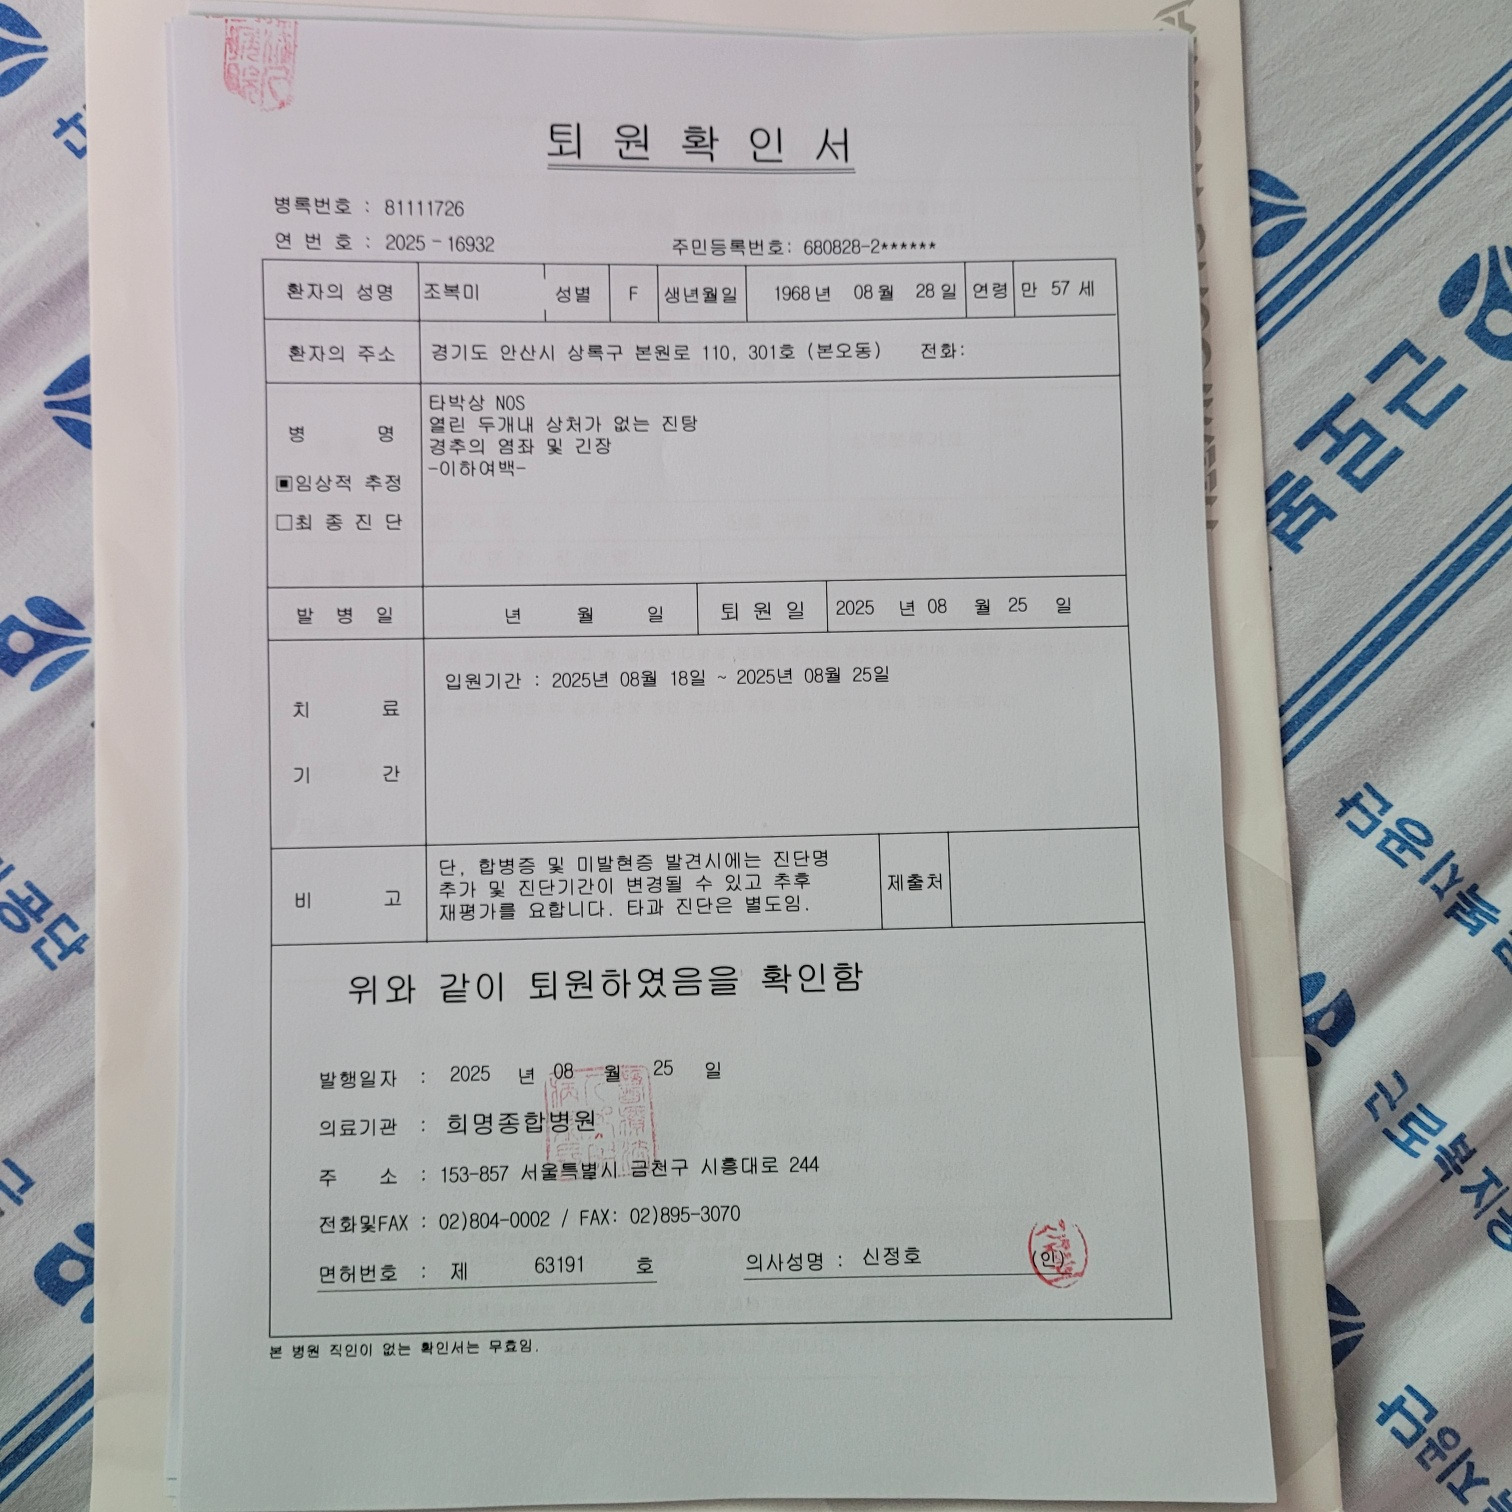 퇴 원 확 인 서
병록번호 : 81111726
연 번 호 : 2025 - 16932 주민등록번호: 680828-2******
환자의 성명 조복미 성별 F 생년월일 1968 년 08 월 28 일 연령 만 57 세
환자의 주소 경기도 안산시 상록구 본원로 110, 301호 (본오동) 전화:
병 명
▣임상적 추정
□최 종 진 단
타박상 NOS
열린 두개내 상처가 없는 진탕
경추의 염좌 및 긴장
-이하여백-
발 병 일 년 월 일 퇴 원 일 2025 년 08 월 25 일
치 료
기 간
입원기간 : 2025년 08월 18일 ~ 2025년 08월 25일
비 고
단, 합병증 및 미발현증 발견시에는 진단명
추가 및 진단기간이 변경될 수 있고 추후
재평가를 요합니다. 타과 진단은 별도임.
제출처
위와 같이 퇴원하였음을 확인함
발행일자 : 2025 년 08 월 25 일
의료기관 : 희명종합병원
주 소 : 153-857 서울특별시 금천구 시흥대로 244
전화및FAX : 02)804-0002 / FAX: 02)895-3070
면허번호 : 제 63191 호 의사성명 : 신정호 (인)
본 병원 직인이 없는 확인서는 무효임.
근로복
근로복지공단